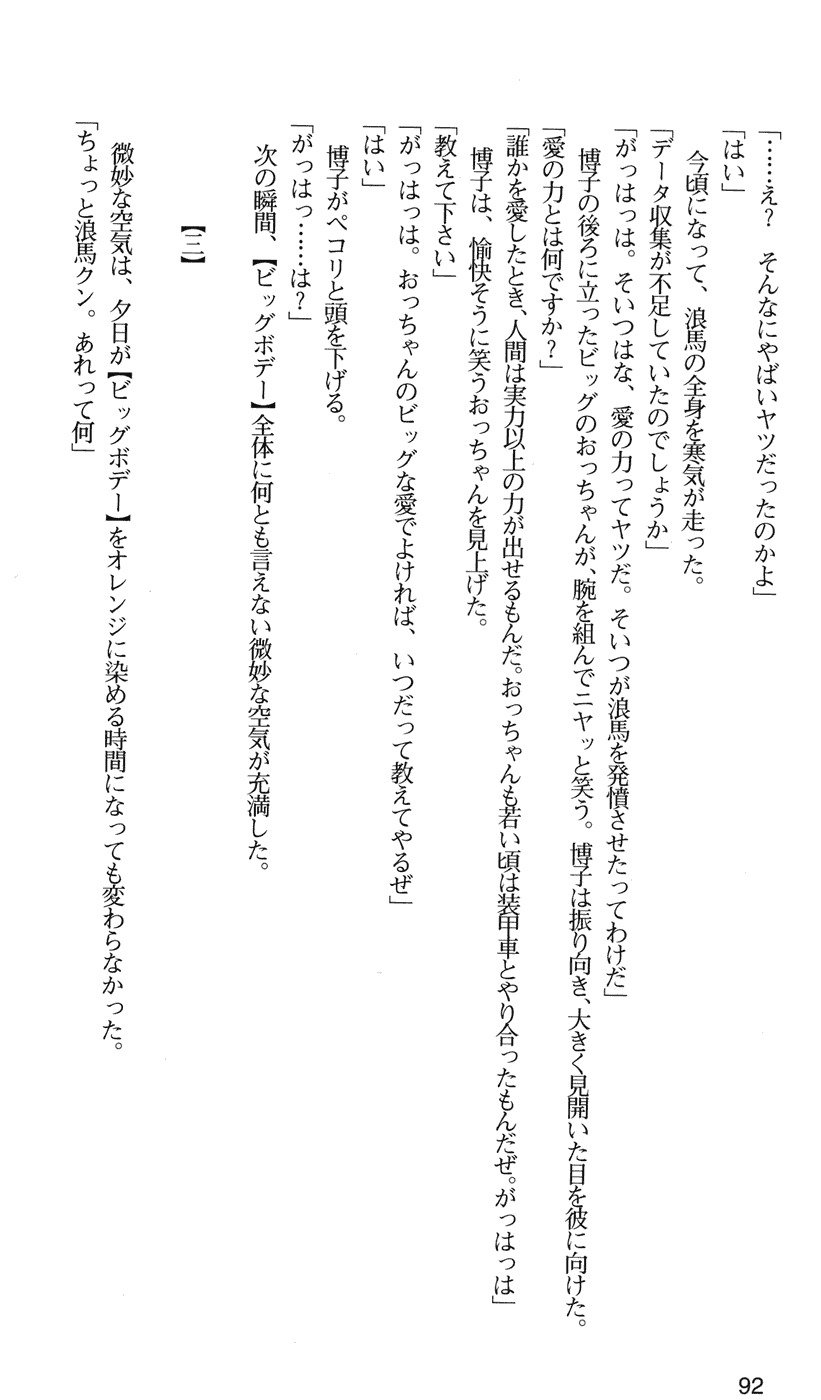 「……え？　そんなにやばいヤツだったのかよ」
「はい」
　今頃になって、浪馬の全身を寒気が走った。
「データ収集が不足していたのでしょうか」
「がっはっは。そいつはな、愛の力ってヤツだ。そいつが浪馬を発憤させたってわけだ」
　博子の後ろに立ったビッグのおっちゃんが、腕を組んでニヤッと笑う。博子は振り向き、大きく見開いた目を彼に向けた。
「愛の力とは何ですか？」
「誰かを愛したとき、人間は実力以上の力が出せるもんだ。おっちゃんも若い頃は装甲車とやり合ったもんだぜ。がっはっは」
　博子は、愉快そうに笑うおっちゃんを見上げた。
「教えて下さい」
「がっはっは。おっちゃんのビッグな愛でよければ、いつだって教えてやるぜ」
「はい」
　博子がペコリと頭を下げる。
「がっはっ……は？」
　次の瞬間、【ビッグボデー】全体に何とも言えない微妙な空気が充満した。
【三】
　微妙な空気は、夕日が【ビッグボデー】をオレンジに染める時間になっても変わらなかった。
「ちょっと浪馬クン。あれって何」
92